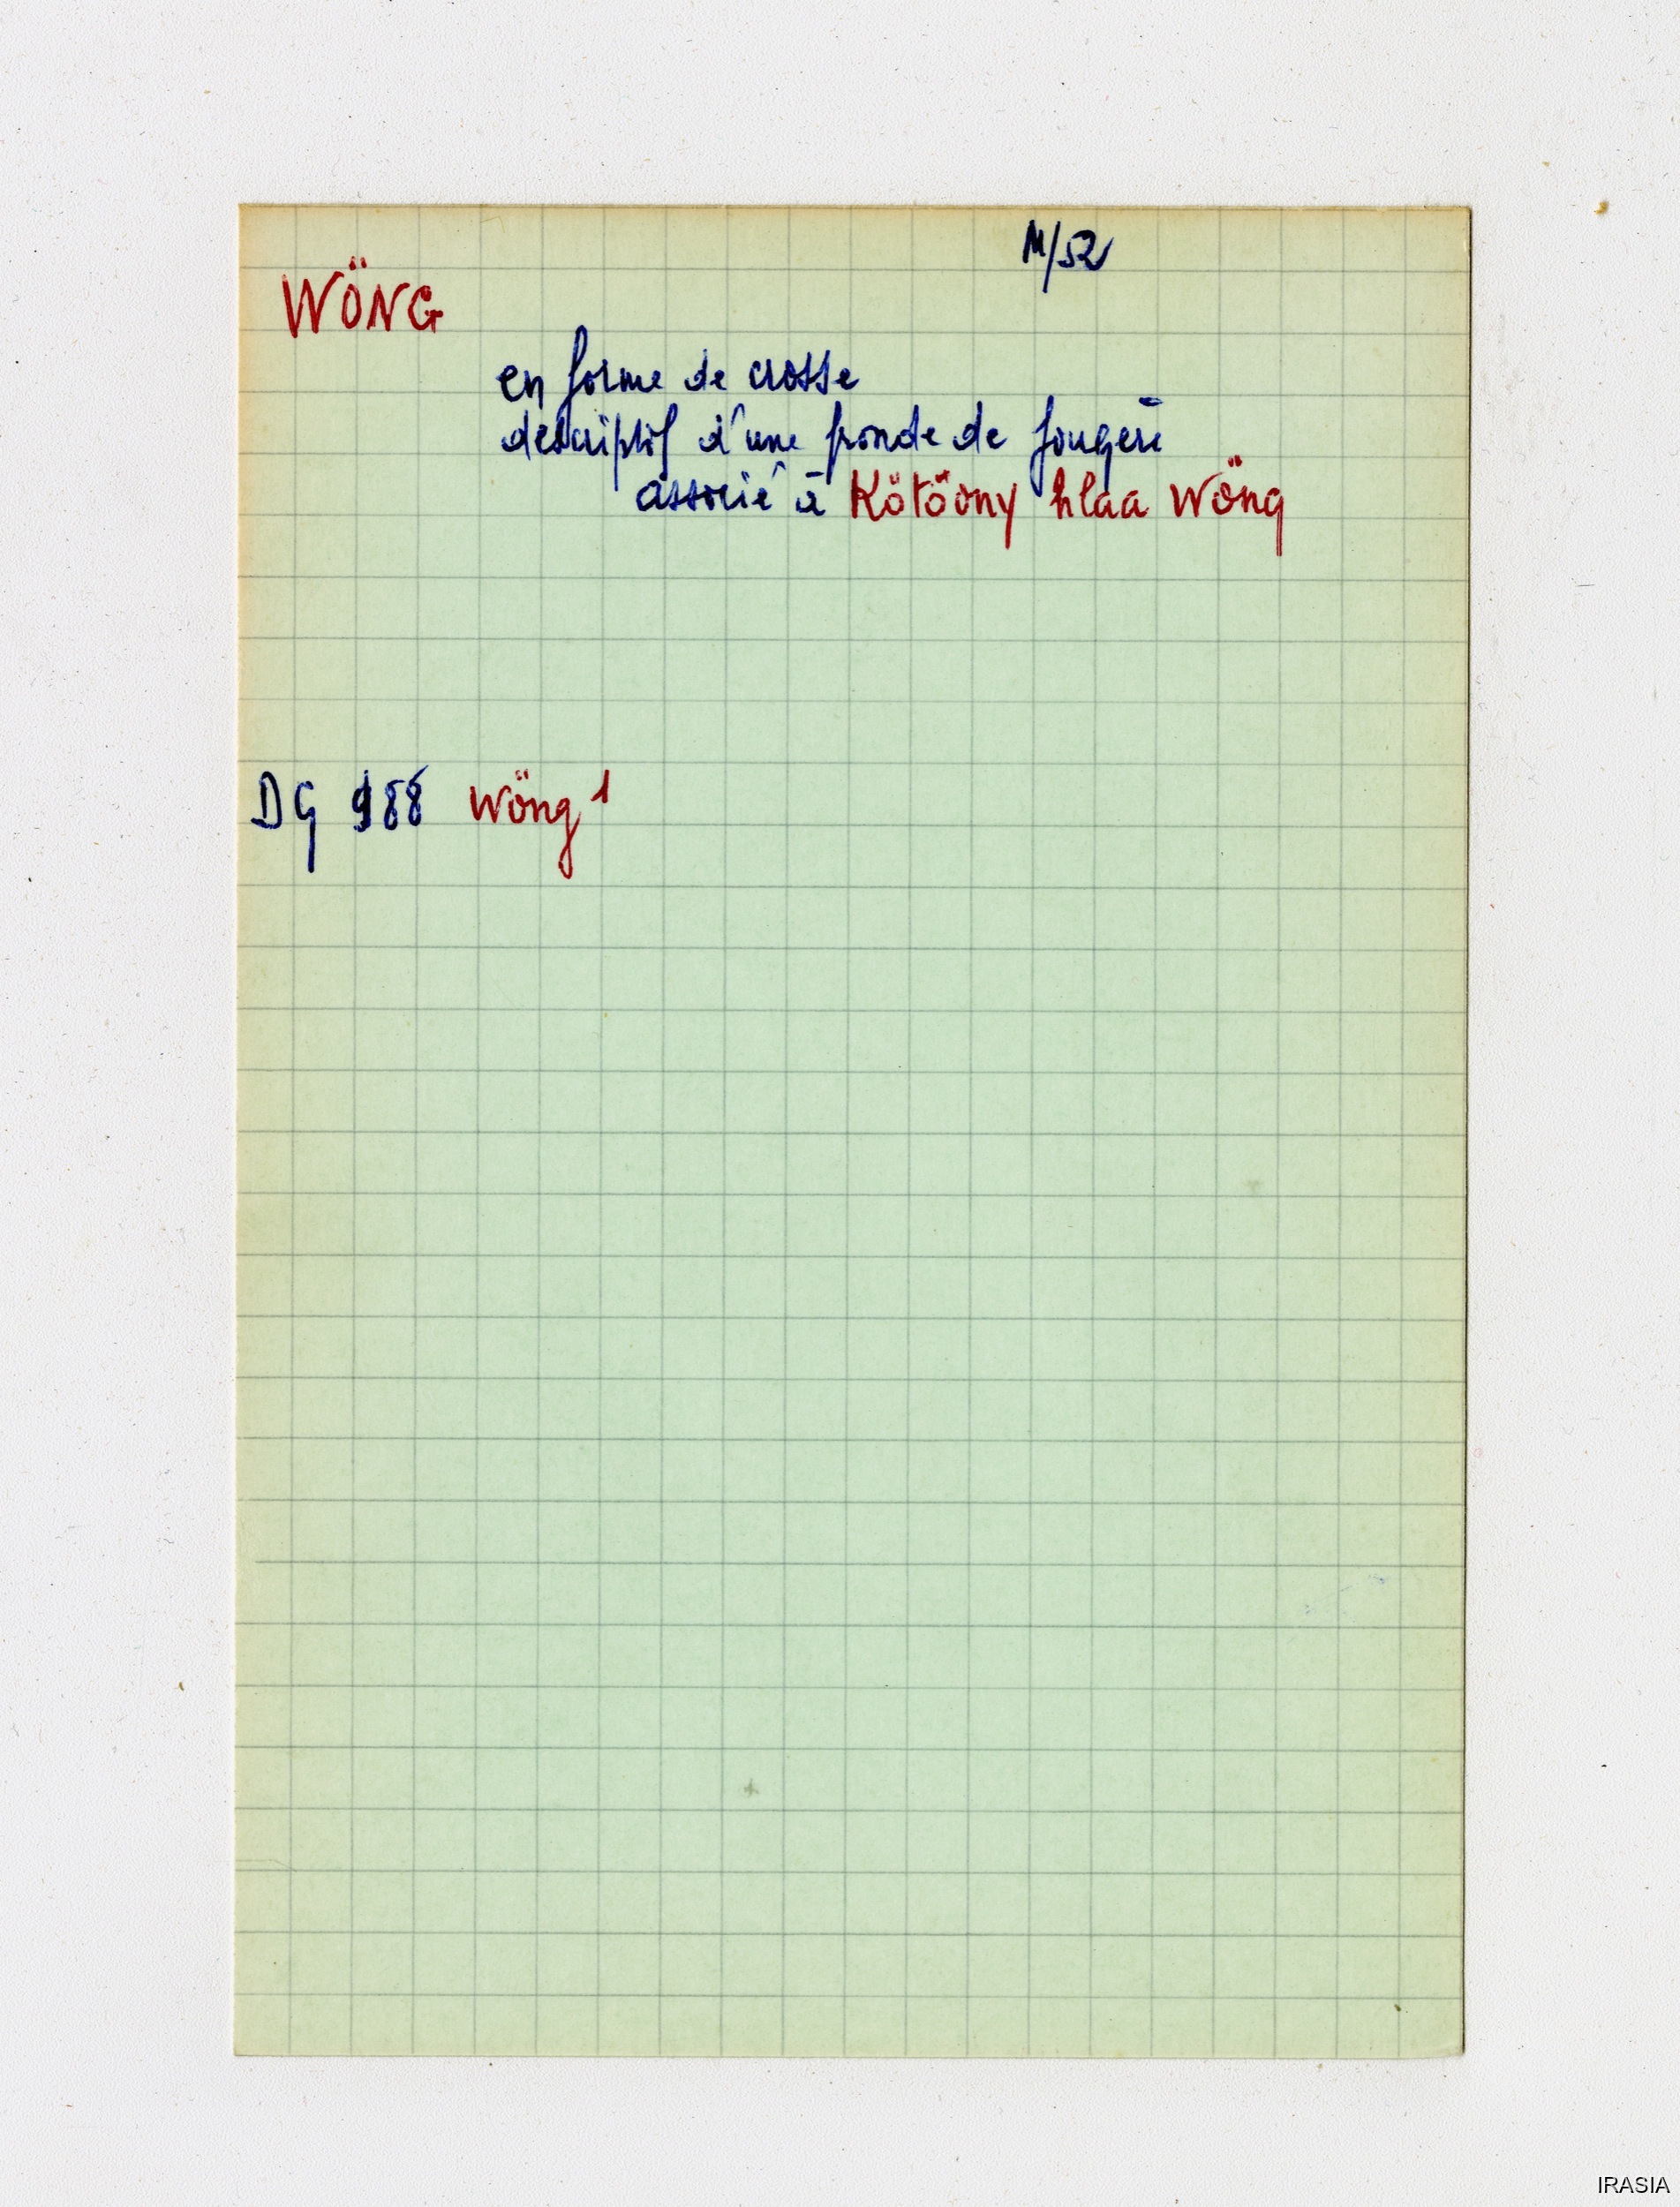 M/52
WÖNG
en forme de crosse
descriptif d'une fronde de fougère
associé à Kötöony hlaa Wöng
DG 988 Wöng 1
IRASIA